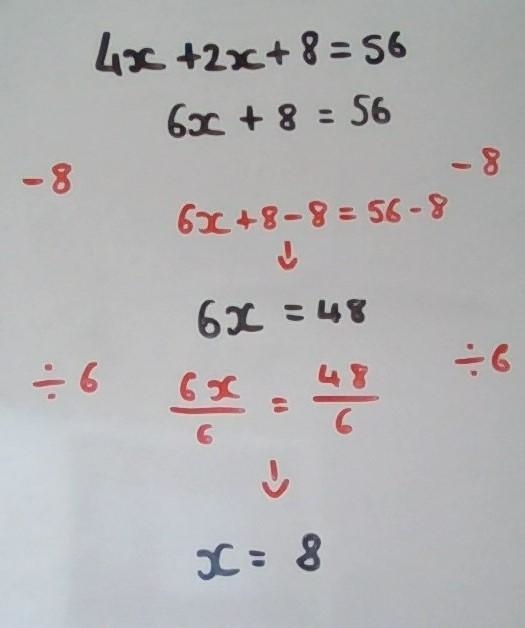 4x + 2x + 8 = 56
6x + 8 = 56
- 8 - 8
6x + 8 - 8 = 56 - 8
↓
6x = 48
÷ 6 6x/6 = 48/6 ÷ 6
↓
x = 8